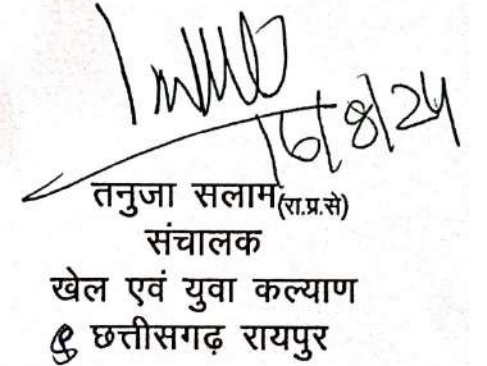 16/8/24
तनुजा सलाम(रा.प्र.से)
संचालक
खेल एवं युवा कल्याण
छत्तीसगढ़ रायपुर